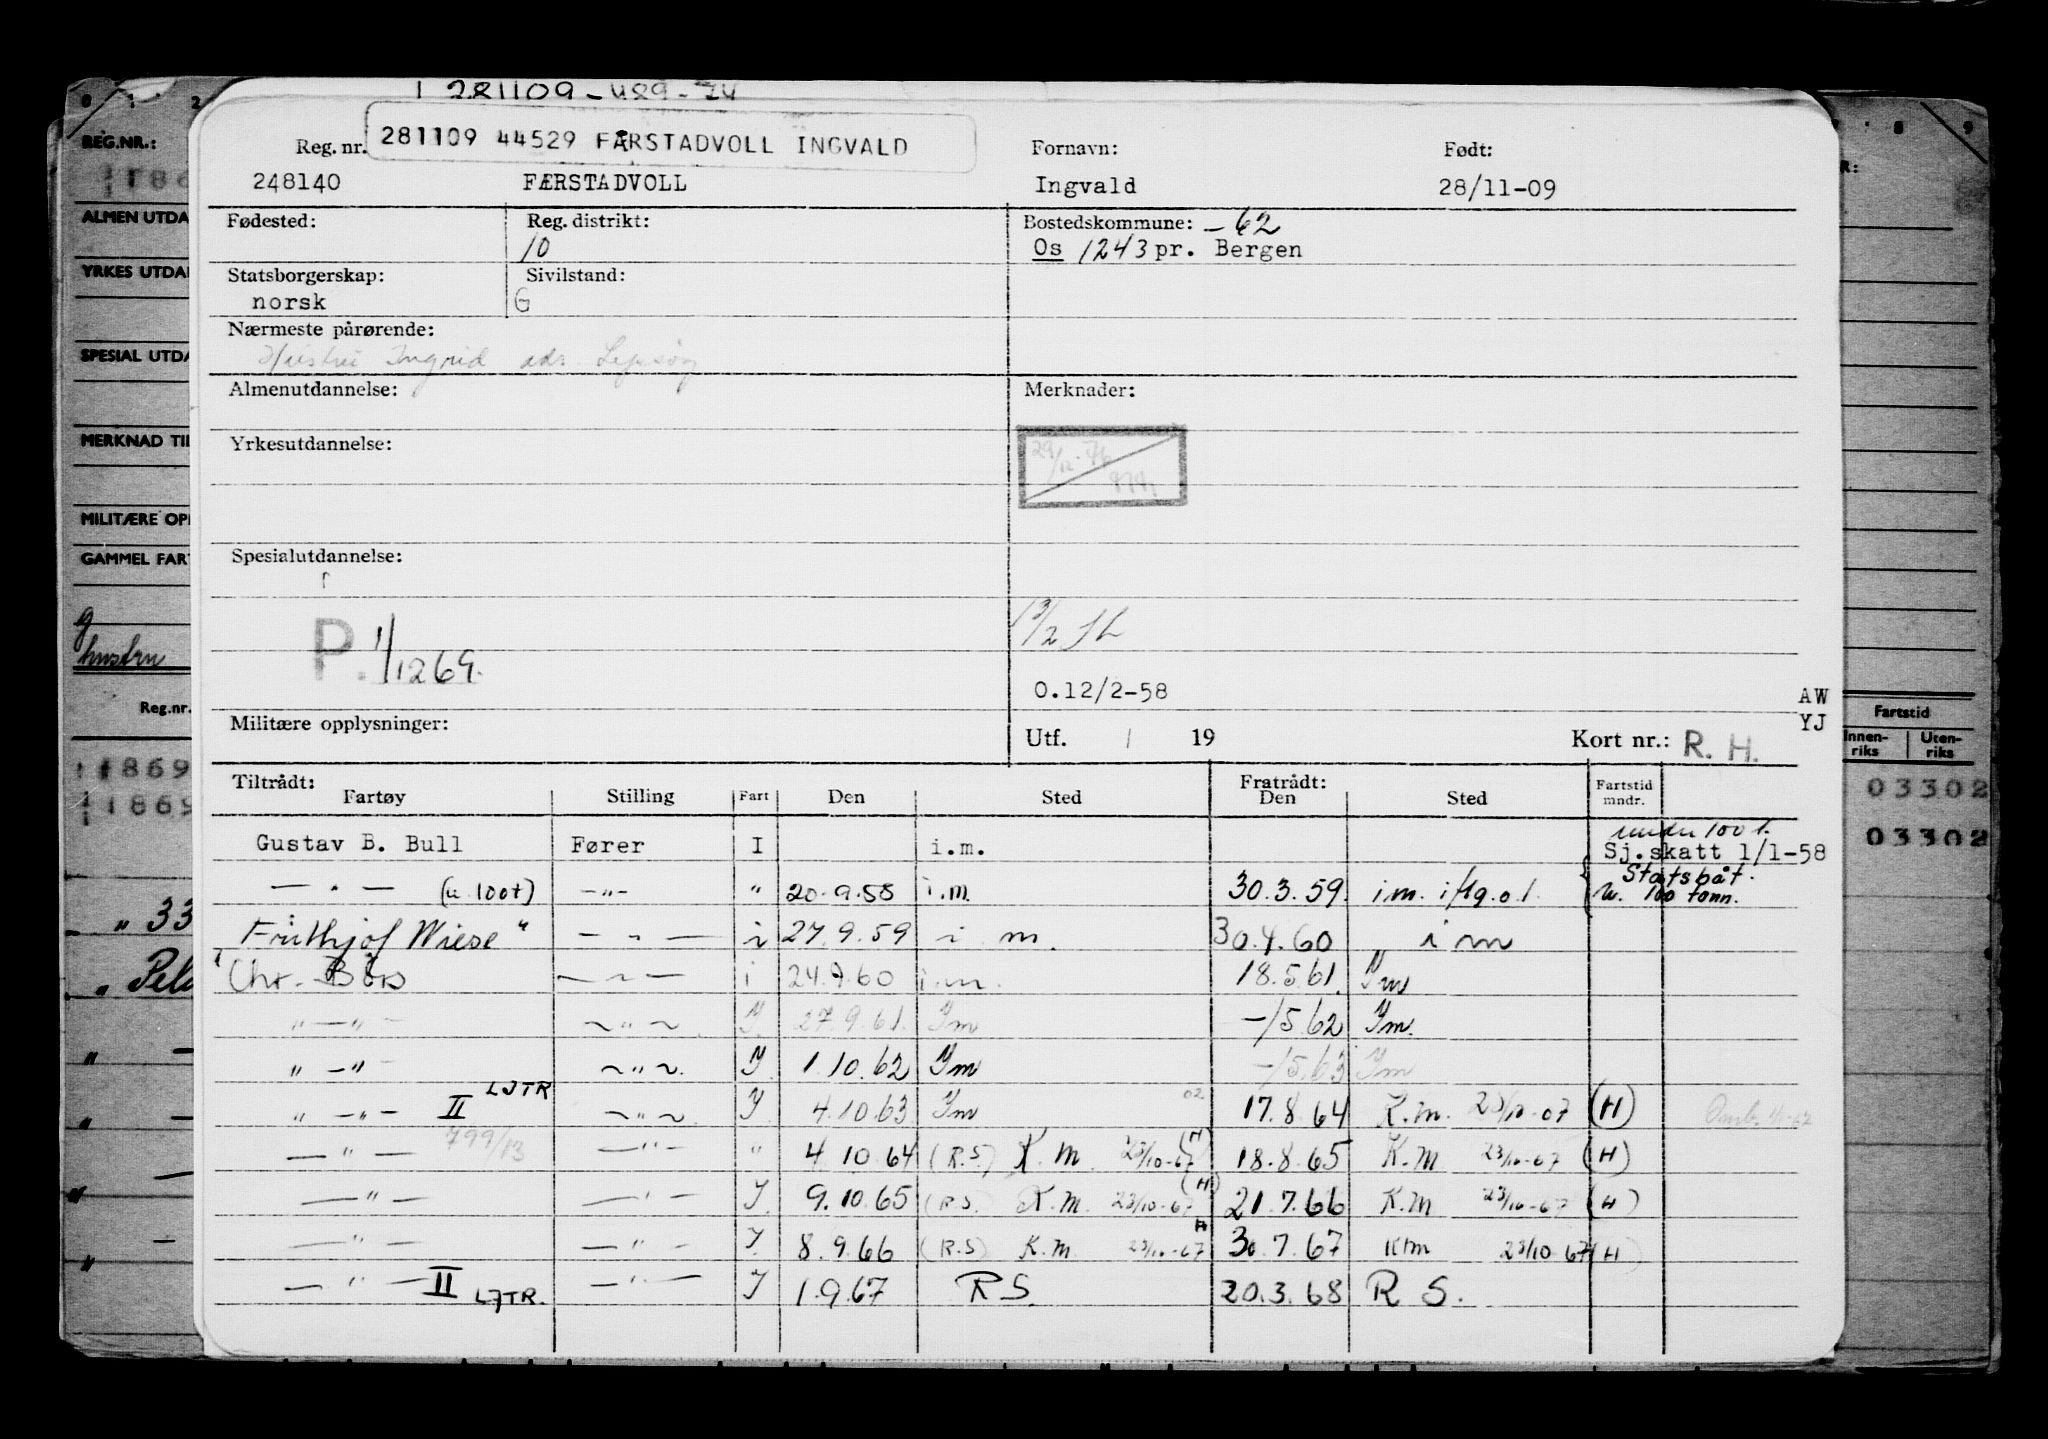 281109 - 489-74
281109 44529 FÅRSTADVOLL INGVALD
Reg. nr. Fornavn: Født:
248140 FÆRSTADVOLL Ingvald 28/11-09
Fødested: Reg. distrikt: Bostedskommune: -62
10 Os 1243 pr. Bergen
Statsborgerskap: Sivilstand:
norsk G
Nærmeste pårørende:
Hustru Ingrid adr. Lepsøy
Almenutdannelse: Merknader:
29/12-76
Yrkesutdannelse:
Spesialutdannelse:
P. 1/12 69.
13/2 SL
O.12/2-58
AW
YJ
Militære opplysninger: Utf. / 19 Kort nr.: R. H.
Tiltrådt: Fratrådt:
Fartøy Stilling Fart Den Sted Den Sted Fartstid mndr.
under 100 t.
Gustav B. Bull Fører I i.m. Sj.skatt 1/1-58
— " — (u 100t) —"— " 20.9.58 i.m. 30.3.59. i.m. i/flg.o.l. Statsbåt. u. 100 tonn.
Frithjof Wiese " — " — i 27.9.59 i m. 30.4.60 i m
Chr. Børs — " — i 24.9.60 i.m. 18.5.61. Ym
" — " — ~ " ~ Y. 27.9.61. Ym -/5.62 Ym.
" — " — ~ " ~. Y 1.10.62 Ym -/5.63 Ym
" — " — II LJTR ~ " ~ Y. 4.10.63 Ym 02. 17.8.64 K.m. 23/10-67 (H)
— " — 799/13 — " — " 4.10.64 (R.S.) K.m. 23/10-67 (H) 18.8.65 K.M 23/10-67 (H)
— " — — " — Y. 9.10.65 (R.S.) K.M. 23/10-67 (H) 21.7.66 K.M 23/10-67 (H)
— " — — " — Y. 8.9.66 (R.S) K.M. 23/10-67 H 30.7.67 KM 23/10 67 (H)
— " — II LJTR. — " — Y 1.9.67 R S. 20.3.68 R S.
0 1 2
REG.NR.:
ALMEN UTDA
YRKES UTDA
SPESIAL UTDA
MERKNAD TIL
MILITÆRE OPP
GAMMEL FART
g
hustru
Reg.nr.
1869
1869
" 33
" Pel
8 9
R:
Fartstid
Innen-riks Uten-riks
03302
03302